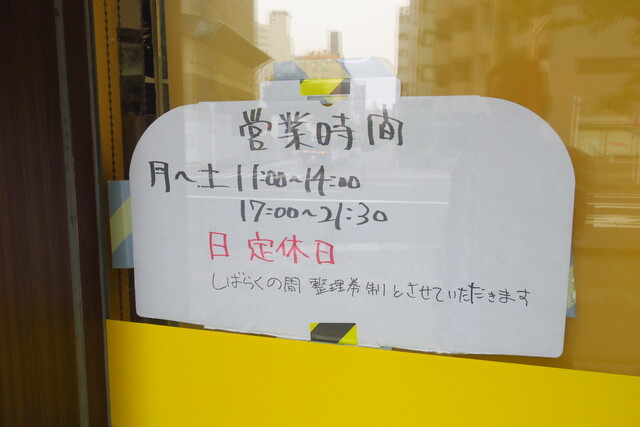 営業時間
月~土 11:00~14:00
17:00~21:30
日 定休日
しばらくの間 整理券制とさせていただきます